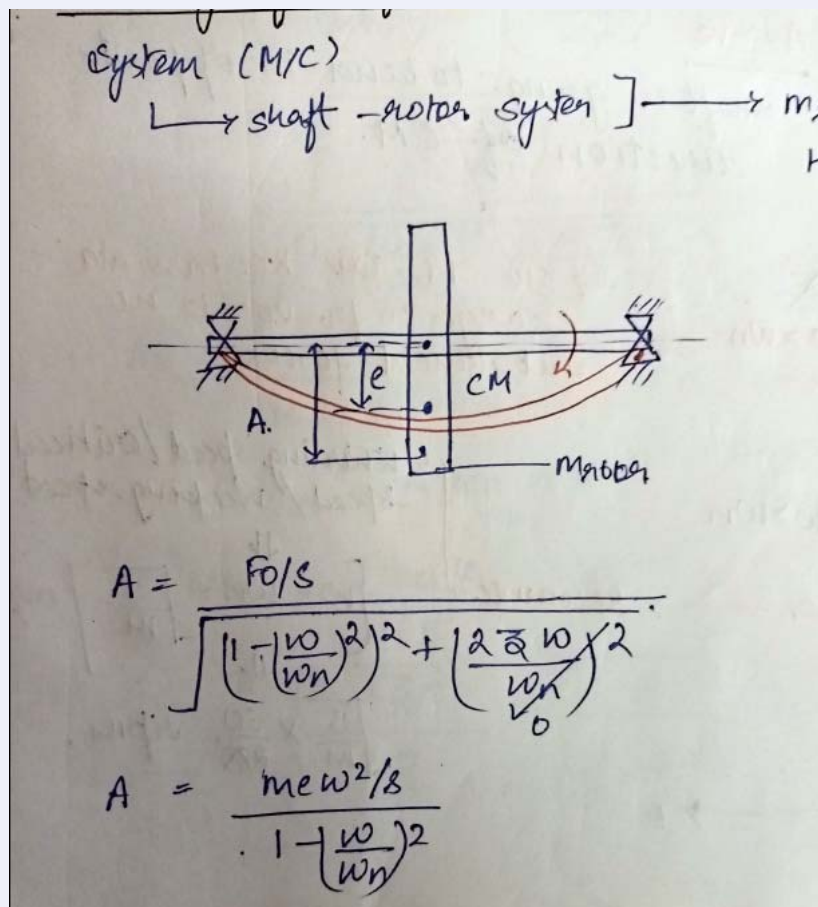 System (M/C)
↳ shaft-rotor system ] → m
e
CM
A.
mrotor
A = F0/s
√((1-(ω/ωn)²)² + (2ξω/ωn)²)
0
A = meω²/s
1-(ω/ωn)²